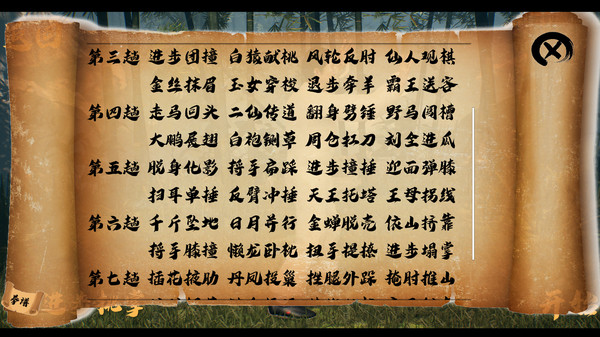 第三趟 进步团撞 白猿献桃 风轮反肘 仙人观棋
金丝抹眉 玉女穿梭 退步牵羊 霸王送客
第四趟 走马回头 二仙传道 翻身劈锤 野马闯槽
大鹏展翅 白袍铡草 周仓扛刀 刘全进瓜
第五趟 脱身化影 捋手扁踩 进步撞捶 迎面弹膝
扫耳单捶 反臂冲捶 天王托塔 王母拐线
第六趟 千斤坠地 日月并行 金蝉脱壳 依山挤靠
捋手膝撞 懒龙卧枕 扭手提撩 进步塌掌
第七趟 插花掖肋 丹凤投巢 挫腿外踩 掩肘推山
拳谱